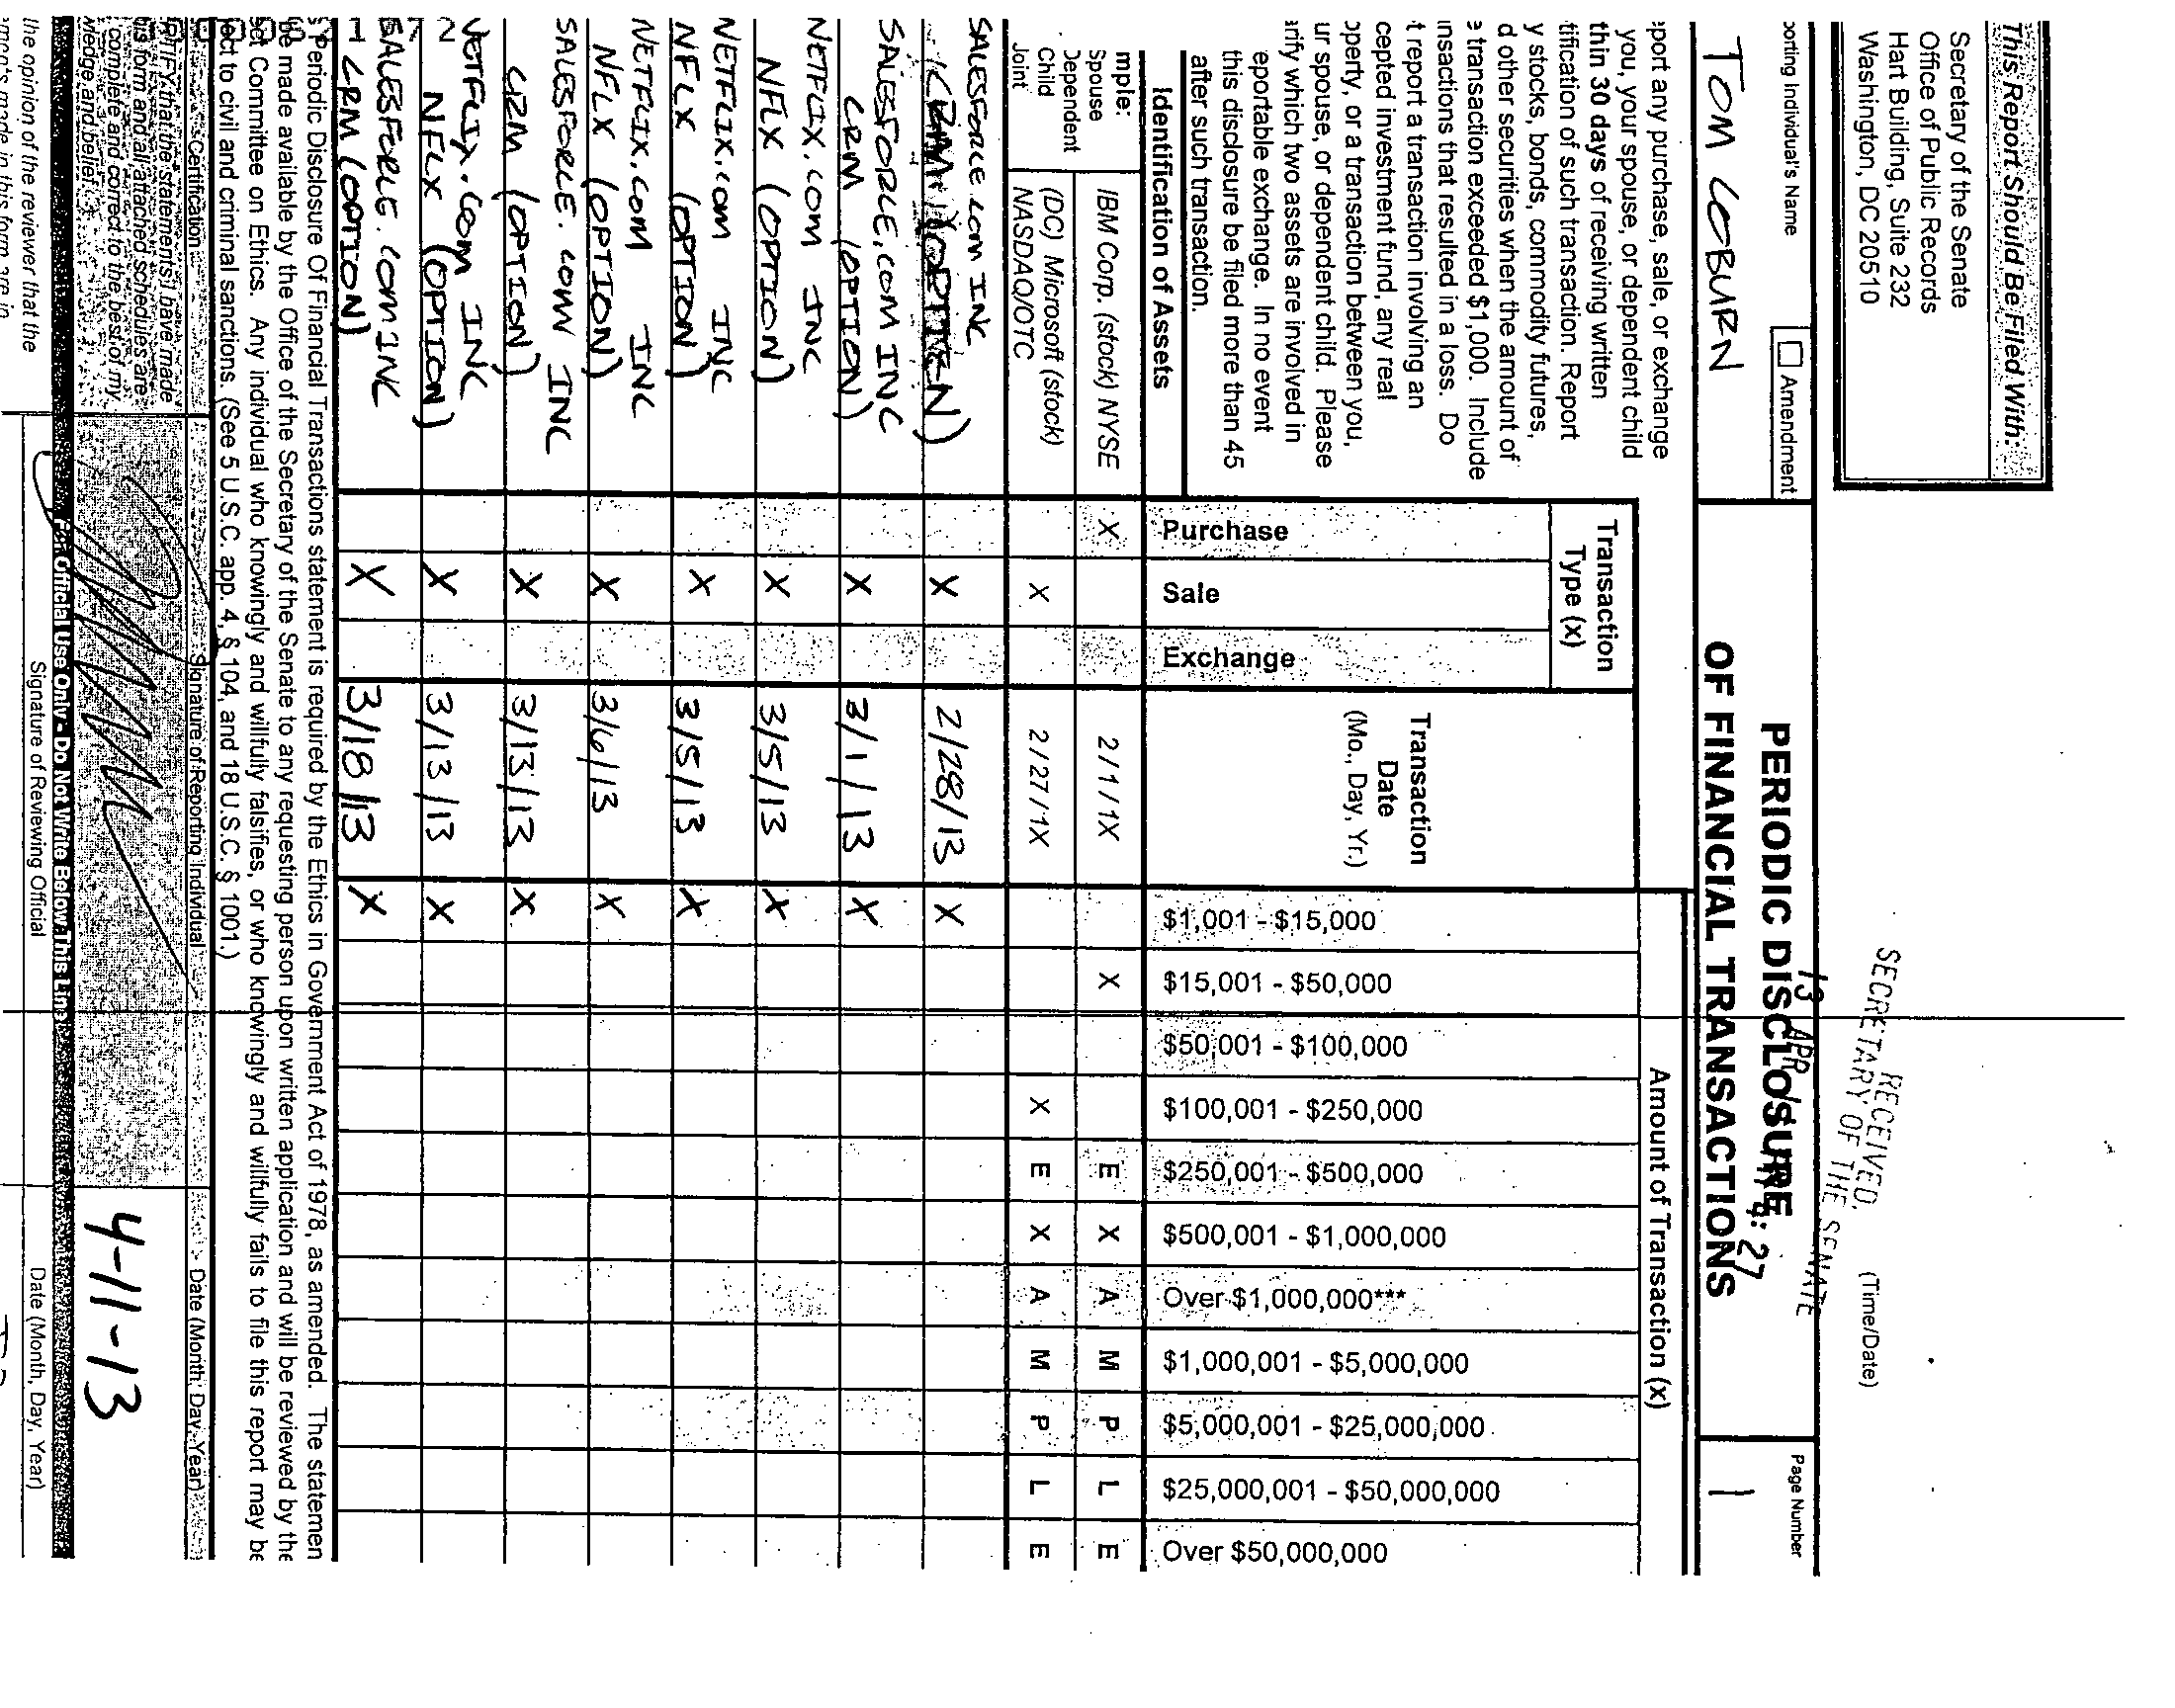 This Report Should Be Filed With:
Secretary of the Senate
Office of Public Records
Hart Building, Suite 232
Washington, DC 20510
RECEIVED
SECRETARY OF THE SENATE
13 APR
(Time/Date)
orting Individual's Name
TOM COBURN
Amendment
PERIODIC DISCLOSURE
OF FINANCIAL TRANSACTIONS
Page Number
1
port any purchase, sale, or exchange
you, your spouse, or dependent child
thin 30 days of receiving written
tification of such transaction. Report
y stocks, bonds, commodity futures,
d other securities when the amount of
e transaction exceeded $1,000. Include
insactions that resulted in a loss. Do
t report a transaction involving an
cepted investment fund, any real
operty, or a transaction between you,
ur spouse, or dependent child. Please
rify which two assets are involved in
eportable exchange. In no event
this disclosure be filed more than 45
after such transaction.
Identification of Assets
Transaction Type (x)
Purchase
Sale
Exchange
Transaction Date
(Mo., Day, Yr.)
Amount of Transaction (x)
$1,001 - $15,000
$15,001 - $50,000
$50,001 - $100,000
$100,001 - $250,000
$250,001 - $500,000
$500,001 - $1,000,000
Over $1,000,000***
$1,000,001 - $5,000,000
$5,000,001 - $25,000,000
$25,000,001 - $50,000,000
Over $50,000,000
mple:
Spouse
Dependent
Child
Joint
IBM Corp. (stock) NYSE X 2/1/1X X E X A M P L E
(DC) Microsoft (stock) NASDAQ/OTC X 2/27/1X X E X A M P L E
SALESFORCE.COM INC
(OPTION) X 2/28/13 X
SALESFORCE.COM INC
CRM (OPTION) X 3/1/13 X
NETFLIX.COM INC
NFLX (OPTION) X 3/5/13 X
NETFLIX.COM INC
NFLX (OPTION) X 3/5/13 X
NETFLIX.COM INC
NFLX (OPTION) X 3/6/13 X
SALESFORCE.COM INC
CRM (OPTION) X 3/13/13 X
NETFLIX.COM INC
NFLX (OPTION) X 3/13/13 X
SALESFORCE.COM INC
CRM (OPTION) X 3/18/13 X
s Periodic Disclosure Of Financial Transactions statement is required by the Ethics in Government Act of 1978, as amended. The statemen
be made available by the Office of the Secretary of the Senate to any requesting person upon written application and will be reviewed by the
ct Committee on Ethics. Any individual who knowingly and willfully falsifies, or who knowingly and willfully fails to file this report may be
ect to civil and criminal sanctions. (See 5 U.S.C. app. 4, § 104, and 18 U.S.C. § 1001.)
Certification
Signature of Reporting Individual
Date (Month, Day, Year)
RTIFY that the statements I have made
is form and all attached schedules are
complete and correct to the best of my
wledge and belief.
4-11-13
Official Use Only - Do Not Write Below This Line
the opinion of the reviewer that the
Signature of Reviewing Official
Date (Month, Day, Year)